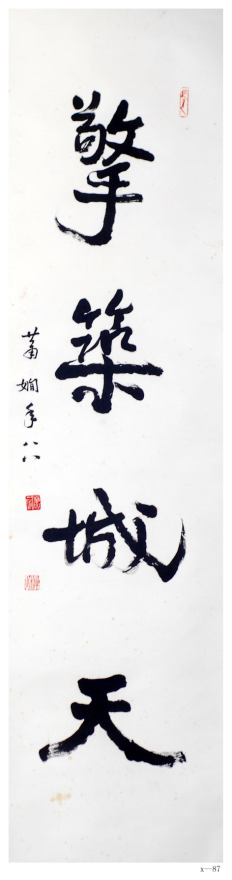 擎築城天
萧娴年八八
x—87